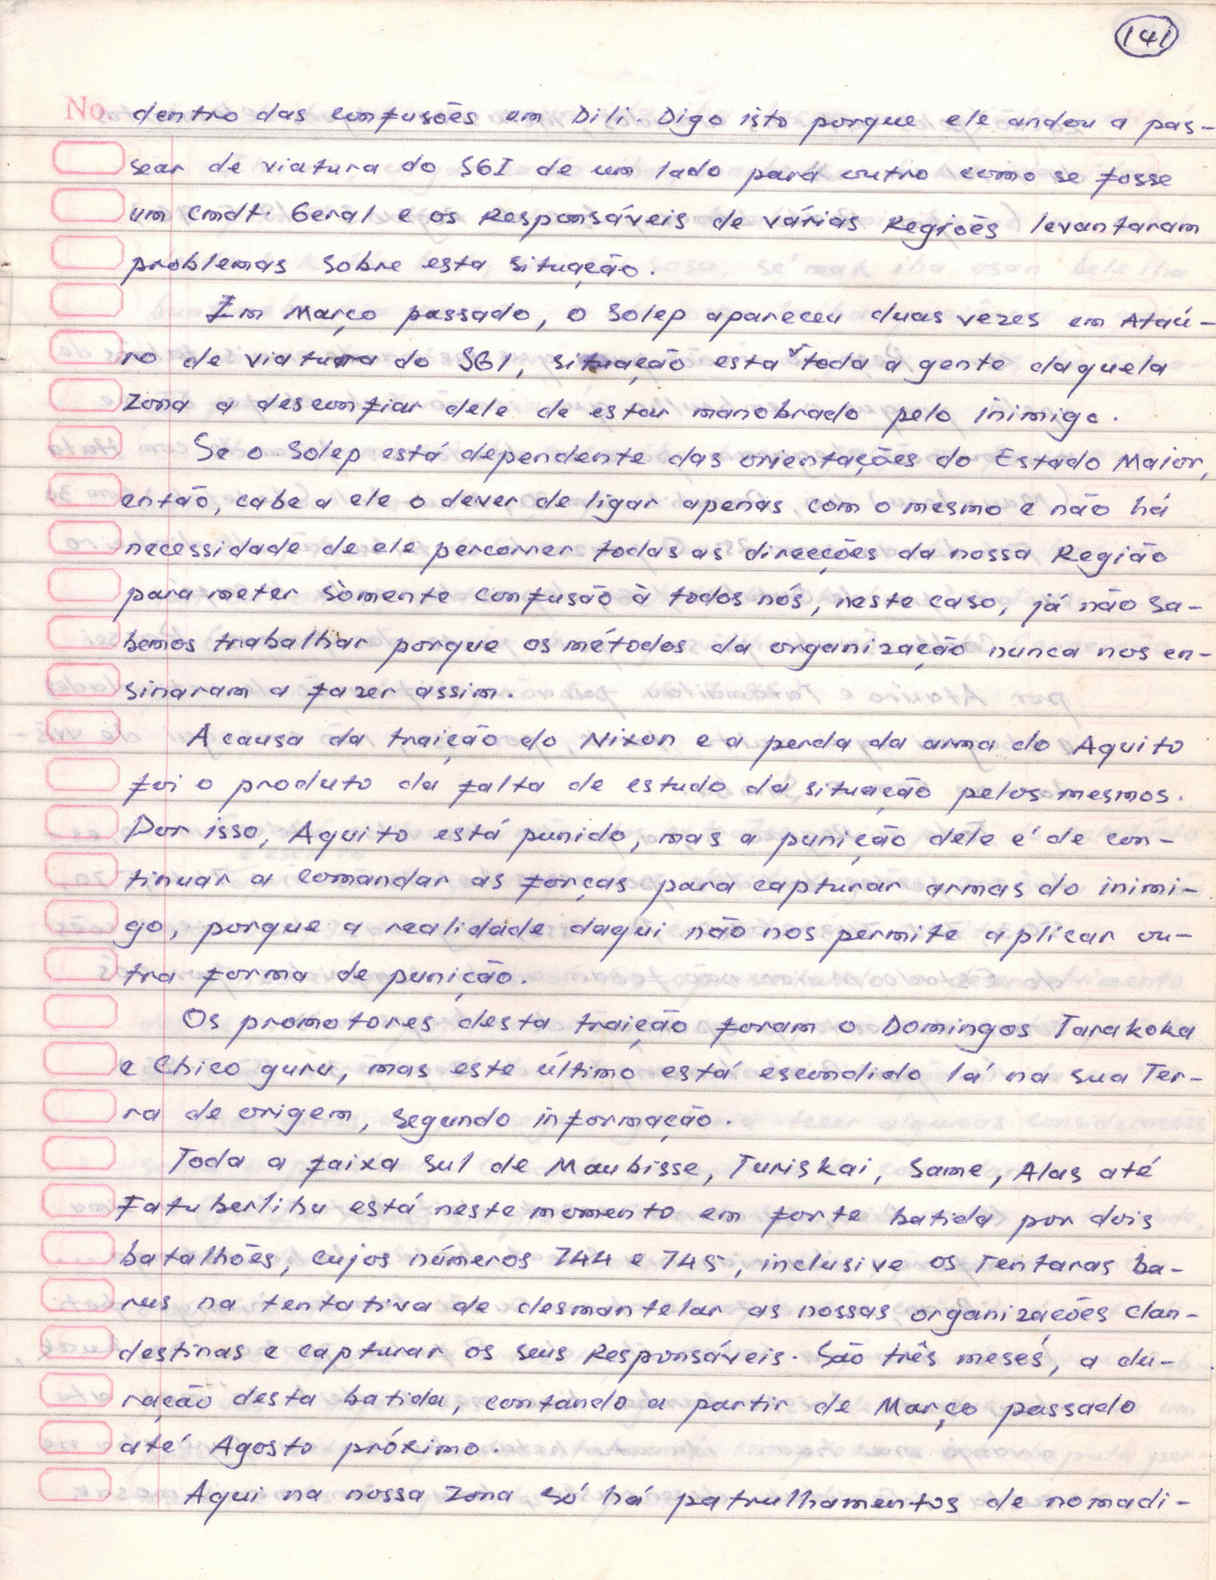 141
No. dentro das confusões em Dili. Digo isto porque ele andou a pás-
sear de viatura do SGI de um lado pará outro como se fosse
um Cmdt. Geral e os Responsáveis de várias Regiões levantaram
problemas sobre esta situação.
Em Março passado, o Solep apareceu duas vêzes em Ataú-
ro de viatura do SGI, situação esta toda a gente daquela
Zona a desconfiar dele de estar manobrado pelo inimigo.
Se o Solep está dependente das orientações do Estado Maior,
então, cabe a ele o dever de ligar apenas com o mesmo e não há
necessidade de ele percorrer todas as direcções da nossa Região
para meter sòmente confusão à todos nós, neste caso, já não sa-
bemos trabalhar porque os métodos da organização nunca nos en-
sinaram a fazer assim.
A causa da traição do Nixon e a perda da arma do Aquito
foi o produto da falta de estudo da situação pelos mesmos.
Por isso, Aquito está punido, mas a punição dele é de con-
tinuar a comandar as forças para capturar armas do inimi-
go, porque a realidade daqui não nos permite aplicar ou-
tra forma de punição.
Os promotores desta traição foram o Domingos Tarakoka
e Chico guru, mas este último está escondido lá na sua Ter-
ra de origem, segundo informação.
Toda a faixa sul de Maubisse, Turiskai, Same, Alas até
Fatuberlihu está neste momento em forte batida por dois
batalhões, cujos números 744 e 745, inclusive os Tentaras ba-
rus na tentativa de desmantelar as nossas organizacões clan-
destinas e capturar os seus Responsáveis. São três meses, a du-
ração desta batida, contando a partir de Março passado
até Agosto próximo.
Aqui na nossa Zona só há patrulhamentos de nomadi-